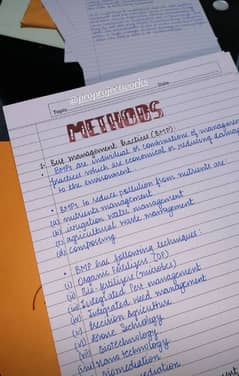 @proprojectworks
Topic
Date
METHODS
1. Best management Practices (BMP)
• BMPs are individual or combinations of management
practices which are economical in reducing damage
to the environment.
• BMPs to reduce pollution from nutrients are:
(a) nutrients management
(b) irrigation water management
(c) agricultural waste management
(d) composting
• BMP has following techniques:
(i) Organic Fertilizers (OF)
(ii) Bio-fertilizers (microbes)
(iii) Integrated Pest management
(iv) Integrated weed management
(v) Precision Agriculture
(vi) Technology
(vii) Biotechnology
(viii) Nano technology
Bioremediation